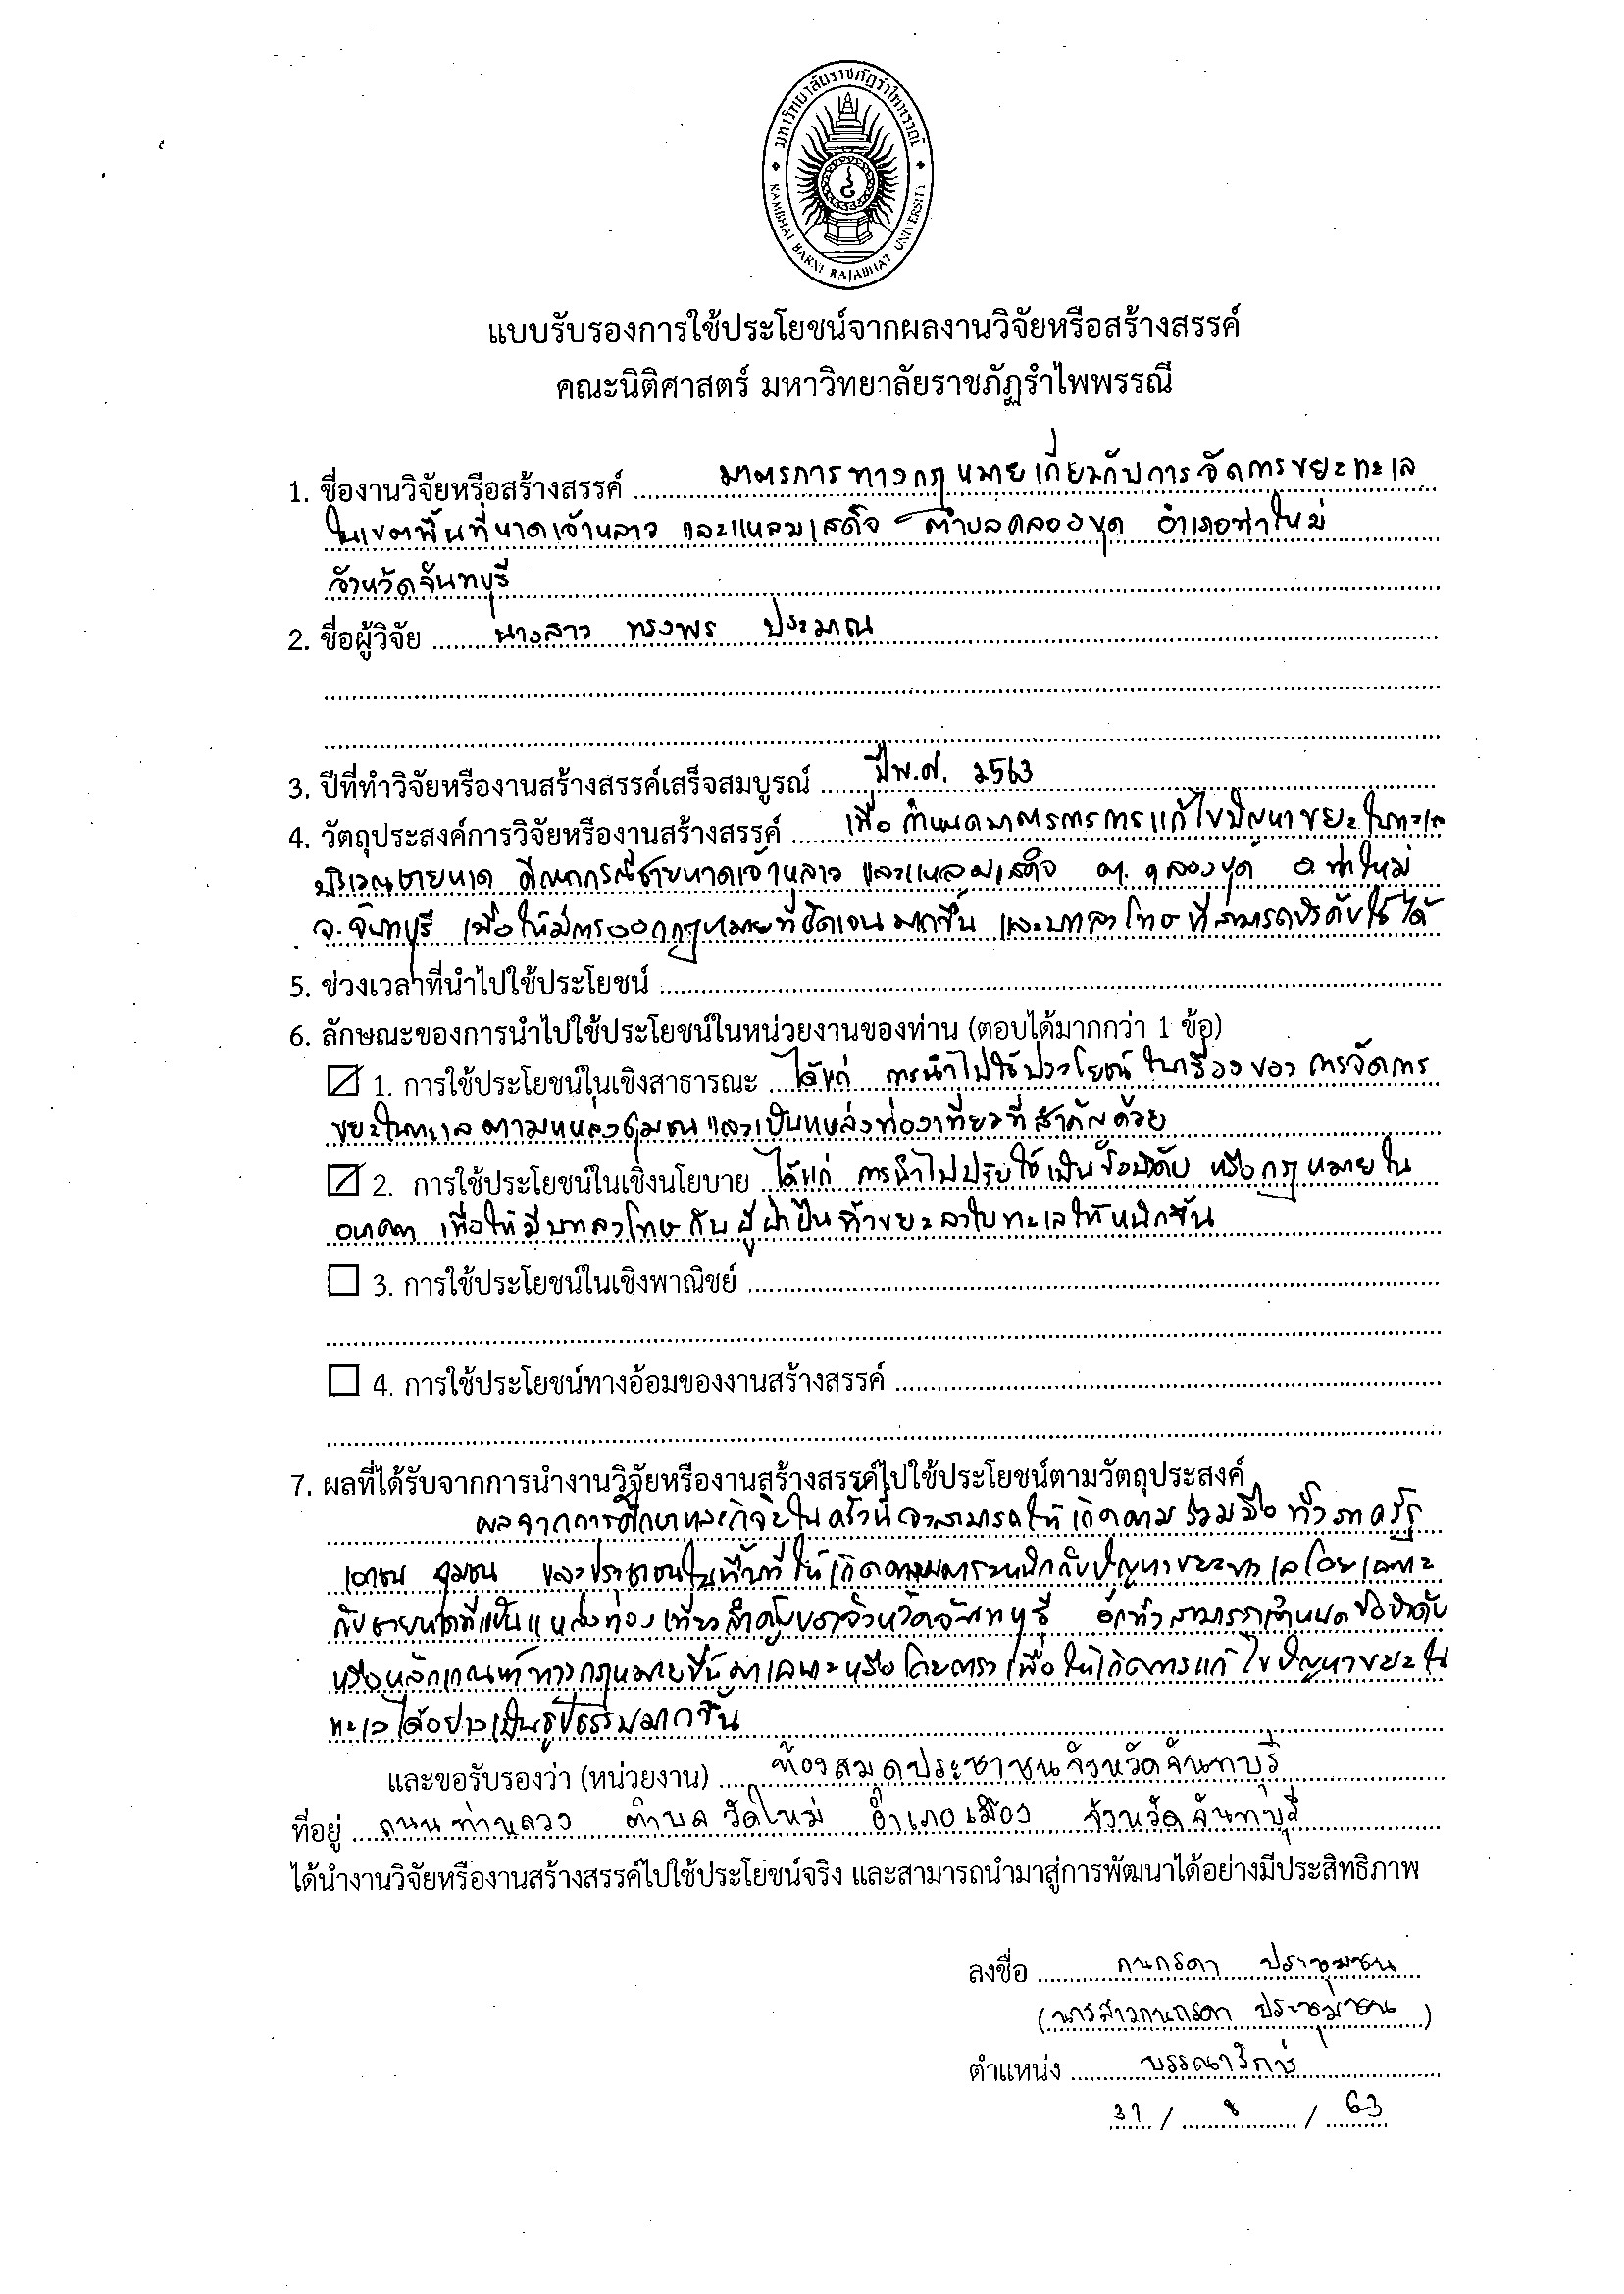 มหาวิทยาลัยราชภัฏรำไพพรรณี
RAMBHAI BARNI RAJABHAT UNIVERSITY
แบบรับรองการใช้ประโยชน์จากผลงานวิจัยหรือสร้างสรรค์
คณะนิติศาสตร์ มหาวิทยาลัยราชภัฏรำไพพรรณี
1. ชื่องานวิจัยหรือสร้างสรรค์ มาตรการทางกฎหมายเกี่ยวกับการจัดการขยะทะเล
ในเขตพื้นที่หาดเจ้าหลาว และแหลมเสด็จ ตำบลคลองขุด อำเภอท่าใหม่
จังหวัดจันทบุรี
2. ชื่อผู้วิจัย นางสาว ทรงพร ประมาณ
3. ปีที่ทำวิจัยหรืองานสร้างสรรค์เสร็จสมบูรณ์ ปีพ.ศ. 2563
4. วัตถุประสงค์การวิจัยหรืองานสร้างสรรค์ เพื่อกำหนดมาตรการการแก้ไขปัญหาขยะในทะเล
บริเวณชายหาด ศึกษากรณีชายหาดเจ้าหลาว และแหลมเสด็จ ต.คลองขุด อ.ท่าใหม่
จ.จันทบุรี เพื่อให้มีการออกกฎหมายที่ชัดเจนมากขึ้น และบทลงโทษที่สามารถบังคับใช้ได้
5. ช่วงเวลาที่นำไปใช้ประโยชน์
6. ลักษณะของการนำไปใช้ประโยชน์ในหน่วยงานของท่าน (ตอบได้มากกว่า 1 ข้อ)
1. การใช้ประโยชน์ในเชิงสาธารณะ ได้แก่ การนำไปใช้ประโยชน์ในเรื่องของการจัดการ
ขยะในทะเล ตามแหล่งชุมชนและเป็นแหล่งท่องเที่ยวที่สำคัญด้วย
2. การใช้ประโยชน์ในเชิงนโยบาย ได้แก่ การนำไปปรับใช้เป็นข้อบังคับ หรือกฎหมายใน
อนาคต เพื่อให้มีบทลงโทษกับผู้ฝ่าฝืนทิ้งขยะลงในทะเลให้หนักขึ้น
3. การใช้ประโยชน์ในเชิงพาณิชย์
4. การใช้ประโยชน์ทางอ้อมของงานสร้างสรรค์
7. ผลที่ได้รับจากการนำงานวิจัยหรืองานสร้างสรรค์ไปใช้ประโยชน์ตามวัตถุประสงค์
ผลจากการศึกษาและวิจัยในครั้งนี้ จะสามารถให้เกิดความร่วมมือ ทั้งภาครัฐ
เอกชน ชุมชน และประชาชนในพื้นที่ ให้เกิดความตระหนักกับปัญหาขยะทะเลโดยเฉพาะ
กับชายหาดที่เป็นแหล่งท่องเที่ยวสำคัญของจังหวัดจันทบุรี อีกทั้งสามารถกำหนดข้อบังคับ
หรือหลักเกณฑ์ทางกฎหมายขึ้นมาเฉพาะหรือโดยตรง เพื่อให้เกิดการแก้ไขปัญหาขยะใน
ทะเลได้อย่างเป็นรูปธรรมมากขึ้น
และขอรับรองว่า (หน่วยงาน) ห้องสมุดประชาชนจังหวัดจันทบุรี
ที่อยู่ ถนนท่าหลวง ตำบลวัดใหม่ อำเภอเมือง จังหวัดจันทบุรี
ได้นำงานวิจัยหรืองานสร้างสรรค์ไปใช้ประโยชน์จริง และสามารถนำมาสู่การพัฒนาได้อย่างมีประสิทธิภาพ
ลงชื่อ กนกรดา ประชุมชน
(นางสาวกนกรดา ประชุมชน)
ตำแหน่ง บรรณารักษ์
31 / 8 / 63